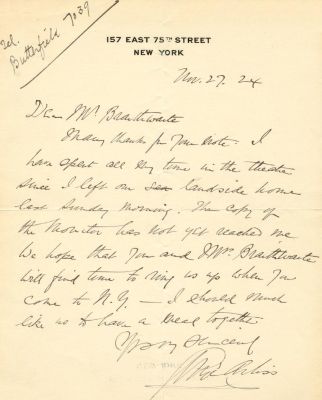 Tel.
Butterfield 7039
157 EAST 75TH STREET
NEW YORK
Nov. 27. 24
Dear Mr Braithwaite
Many thanks for your note. I
have spent all my time in the theatre
since I left our sea landside home
last Sunday morning. The copy of
the Monitor has not yet reached me
We hope that you and Mrs Braithwaite
will find time to ring us up when you
come to N.Y. — I should much
like us to have a meal together
Yrs Sincerely
Arliss